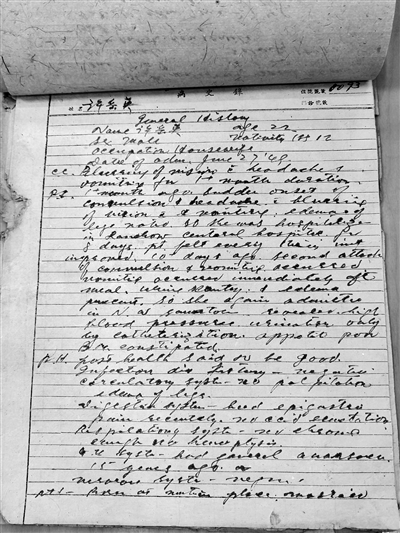 病史錄 0093
General History
Name 許 英 age 22
Sex Male Nativity
Occupation Housewife
Date of adm. June 27 '48.
C.C. Blurring of vision & headache &
vomiting for 1 month duration.
P.I. 1 month ago sudden onset of
convulsion & headache & blurring
of vision & vomiting, edema of
legs noted, so he was hospitalized
in Lanchow Central Hospital for
5 days, pt. felt every thing
improved. 10 days ago second attack
of convulsion & vomiting occurred
vomitig occurred immediately after
meal. urine scanty. & edema
present. So she again admitted
in N.W. revealed high
blood pressure. urination only
by catheterization. appetit poor
B.M. constipated.
P.H. Past health said to be good.
Infection dis. history - negative
Circulatory syste - no palpitation
edema of legs.
Digestive system - had epigastric
pain recently. no acid
Respiratory syste - no chronic
cough no hemoptysis
G.U. Syste - had general anasarca
15 years ago.
nervous syste - negati.
Born at native place, married